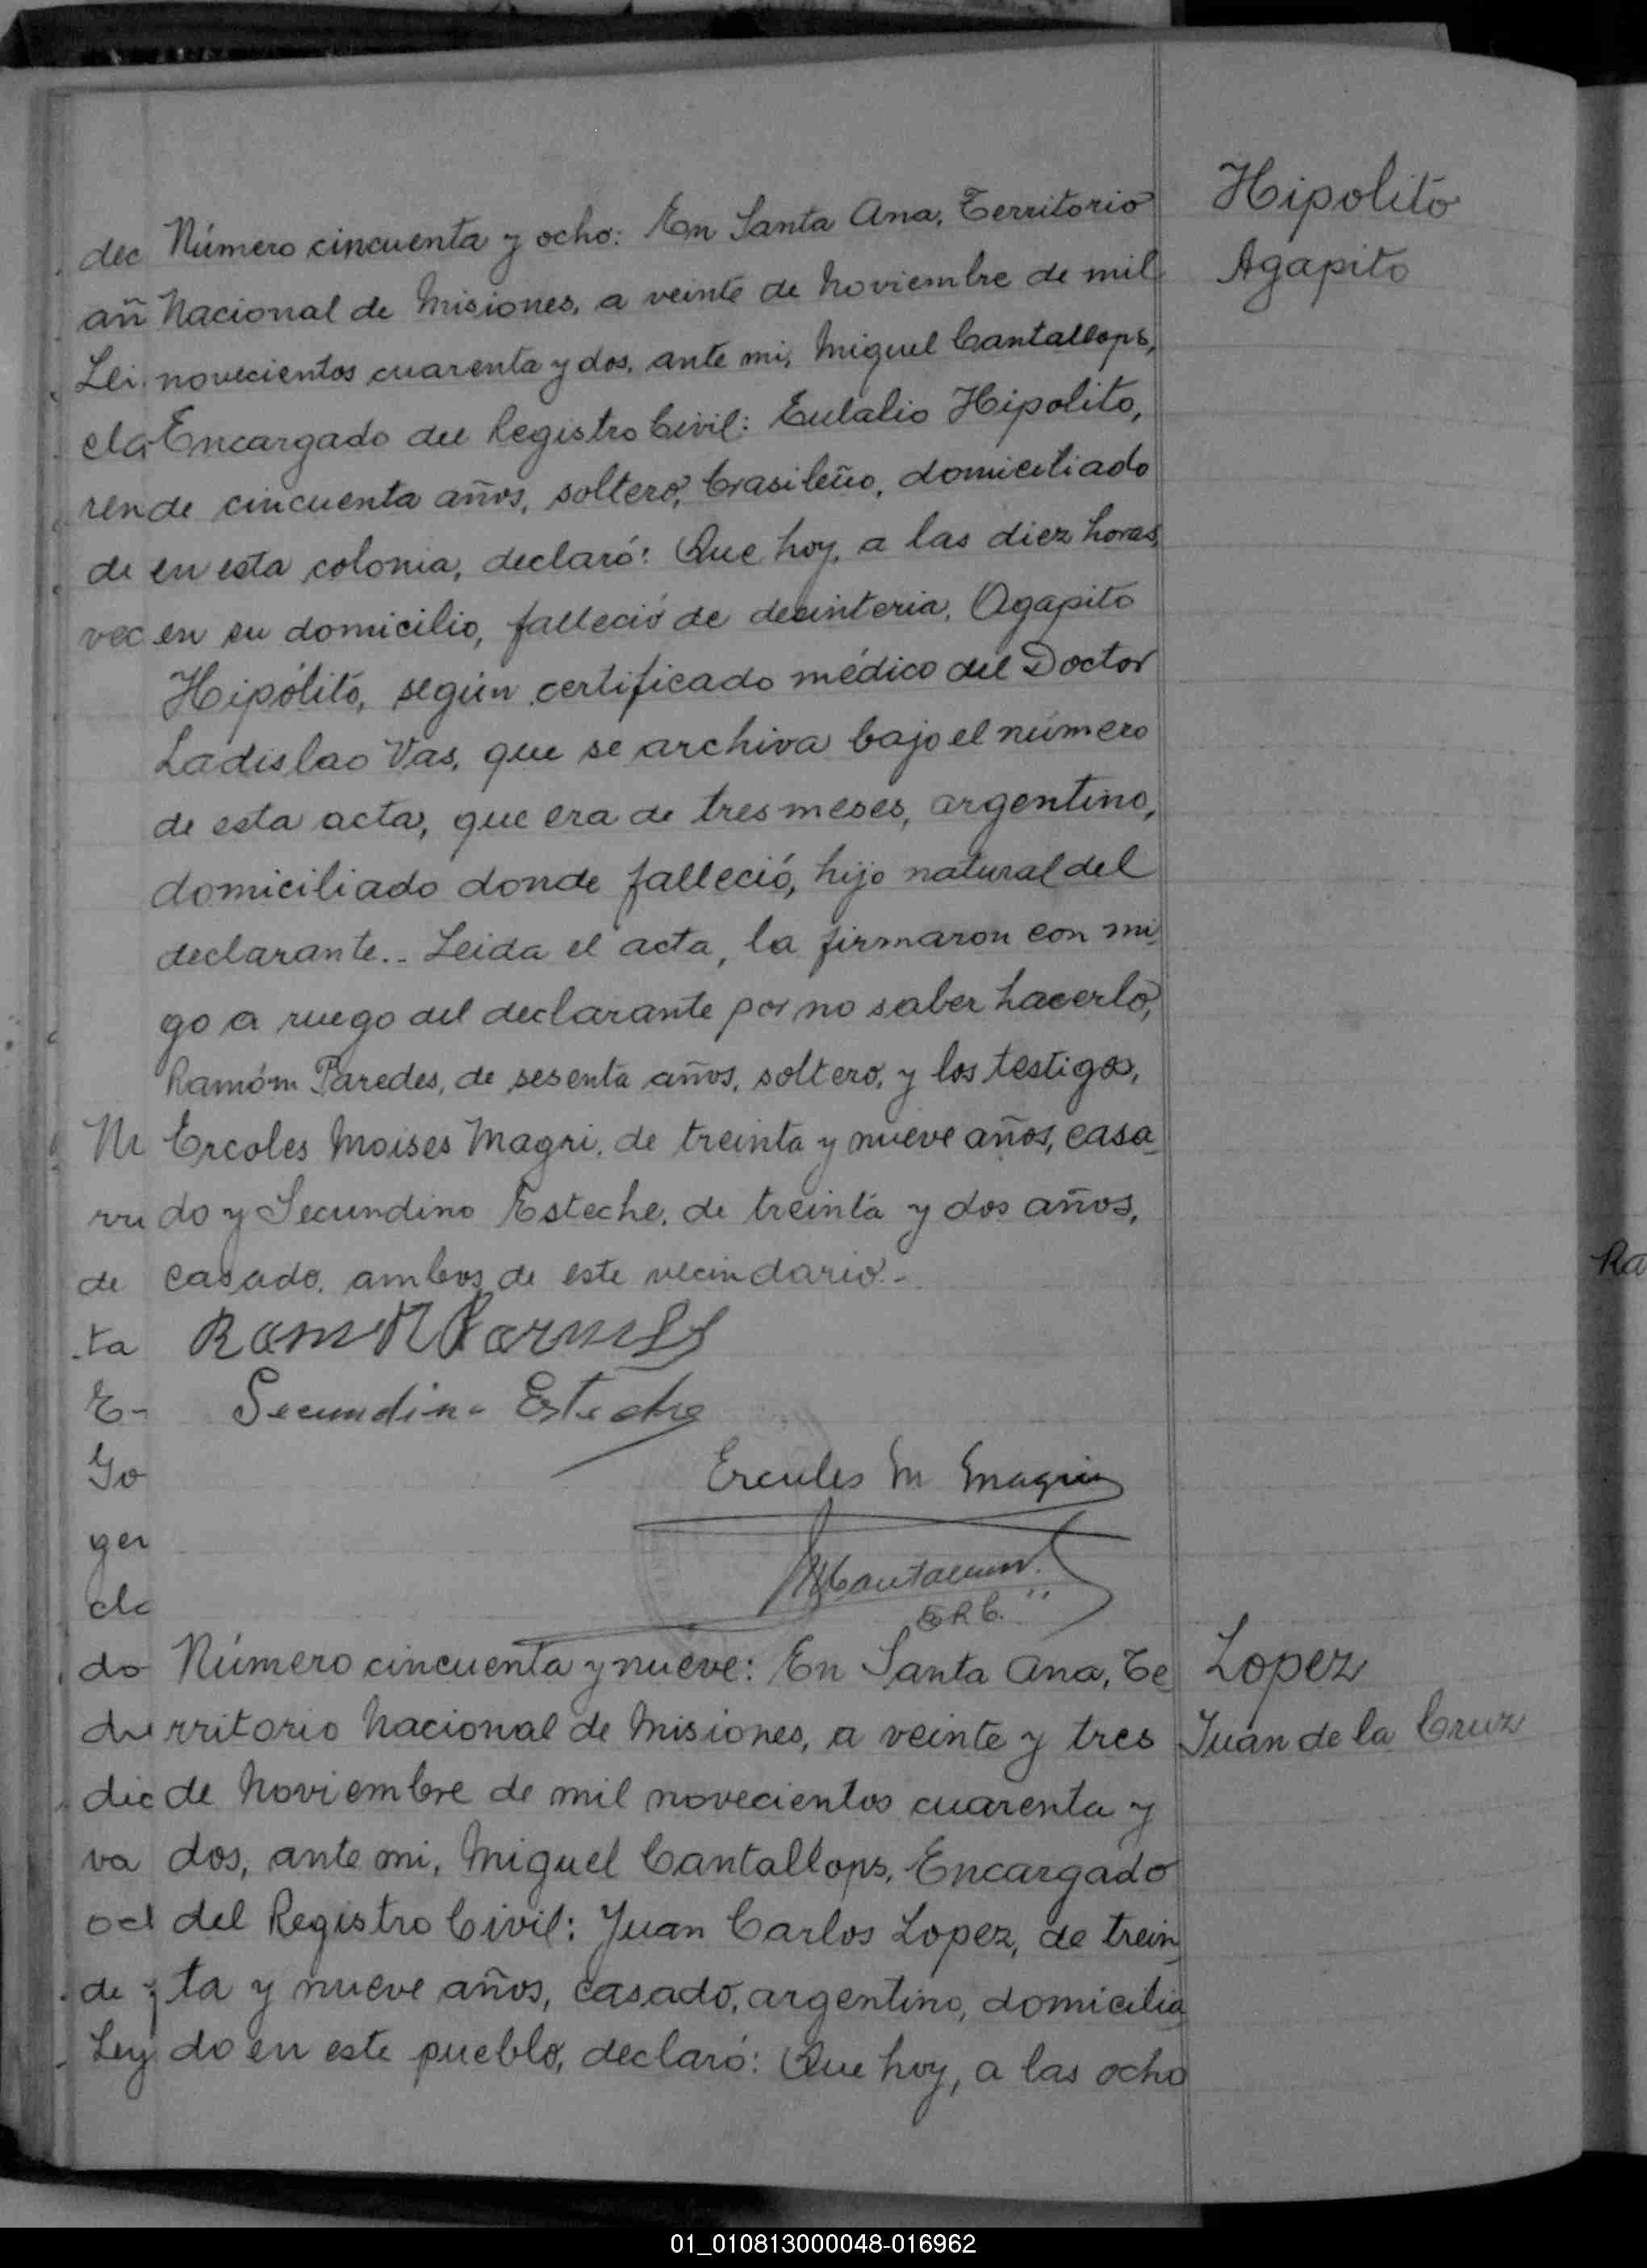 Hipolito
Agapito
dec Número cincuenta y ocho: En Santa Ana, Territorio
añ Nacional de Misiones, a veinte de Noviembre de mil
Lei. novecientos cuarenta y dos, ante mi, Miguel Cantallops,
cla Encargado del Registro Civil: Eulalio Hipolito,
ren de cincuenta años, soltero, brasileño, domiciliado
de en esta colonia, declaró: Que hoy, a las diez horas,
vec en su domicilio, falleció de desinteria, Agapito
Hipólito, según certificado médico del Doctor
Ladislao Vas, que se archiva bajo el número
de esta acta, que era de tres meses, argentino,
domiciliado donde falleció, hijo natural del
declarante.. Leida el acta, la firmaron con mi
go a ruego del declarante por no saber hacerlo,
Ramóm Paredes, de sesenta años, soltero, y los testigos,
Ercoles Moises Magri, de treinta y nueve años, casa
do y Secundino Esteche, de treinta y dos años,
de casado, ambos de este vecindario.-
ta
E- Secundino Esteche
Go Ercules M Magri
ger
cla
E R C.
do Número cincuenta y nueve: En Santa Ana, Te
rritorio Nacional de Misiones, a veinte y tres
dic de Noviembre de mil novecientos cuarenta y
va dos, ante mi, Miguel Cantallops, Encargado
del Registro Civil: Juan Carlos Lopez, de trein
de y ta y nueve años, casado, argentino, domicilia
Ley do en este pueblo, declaró: Que hoy, a las ocho
Lopez
Juan de la Cruz
Ra
01_010813000048-016962